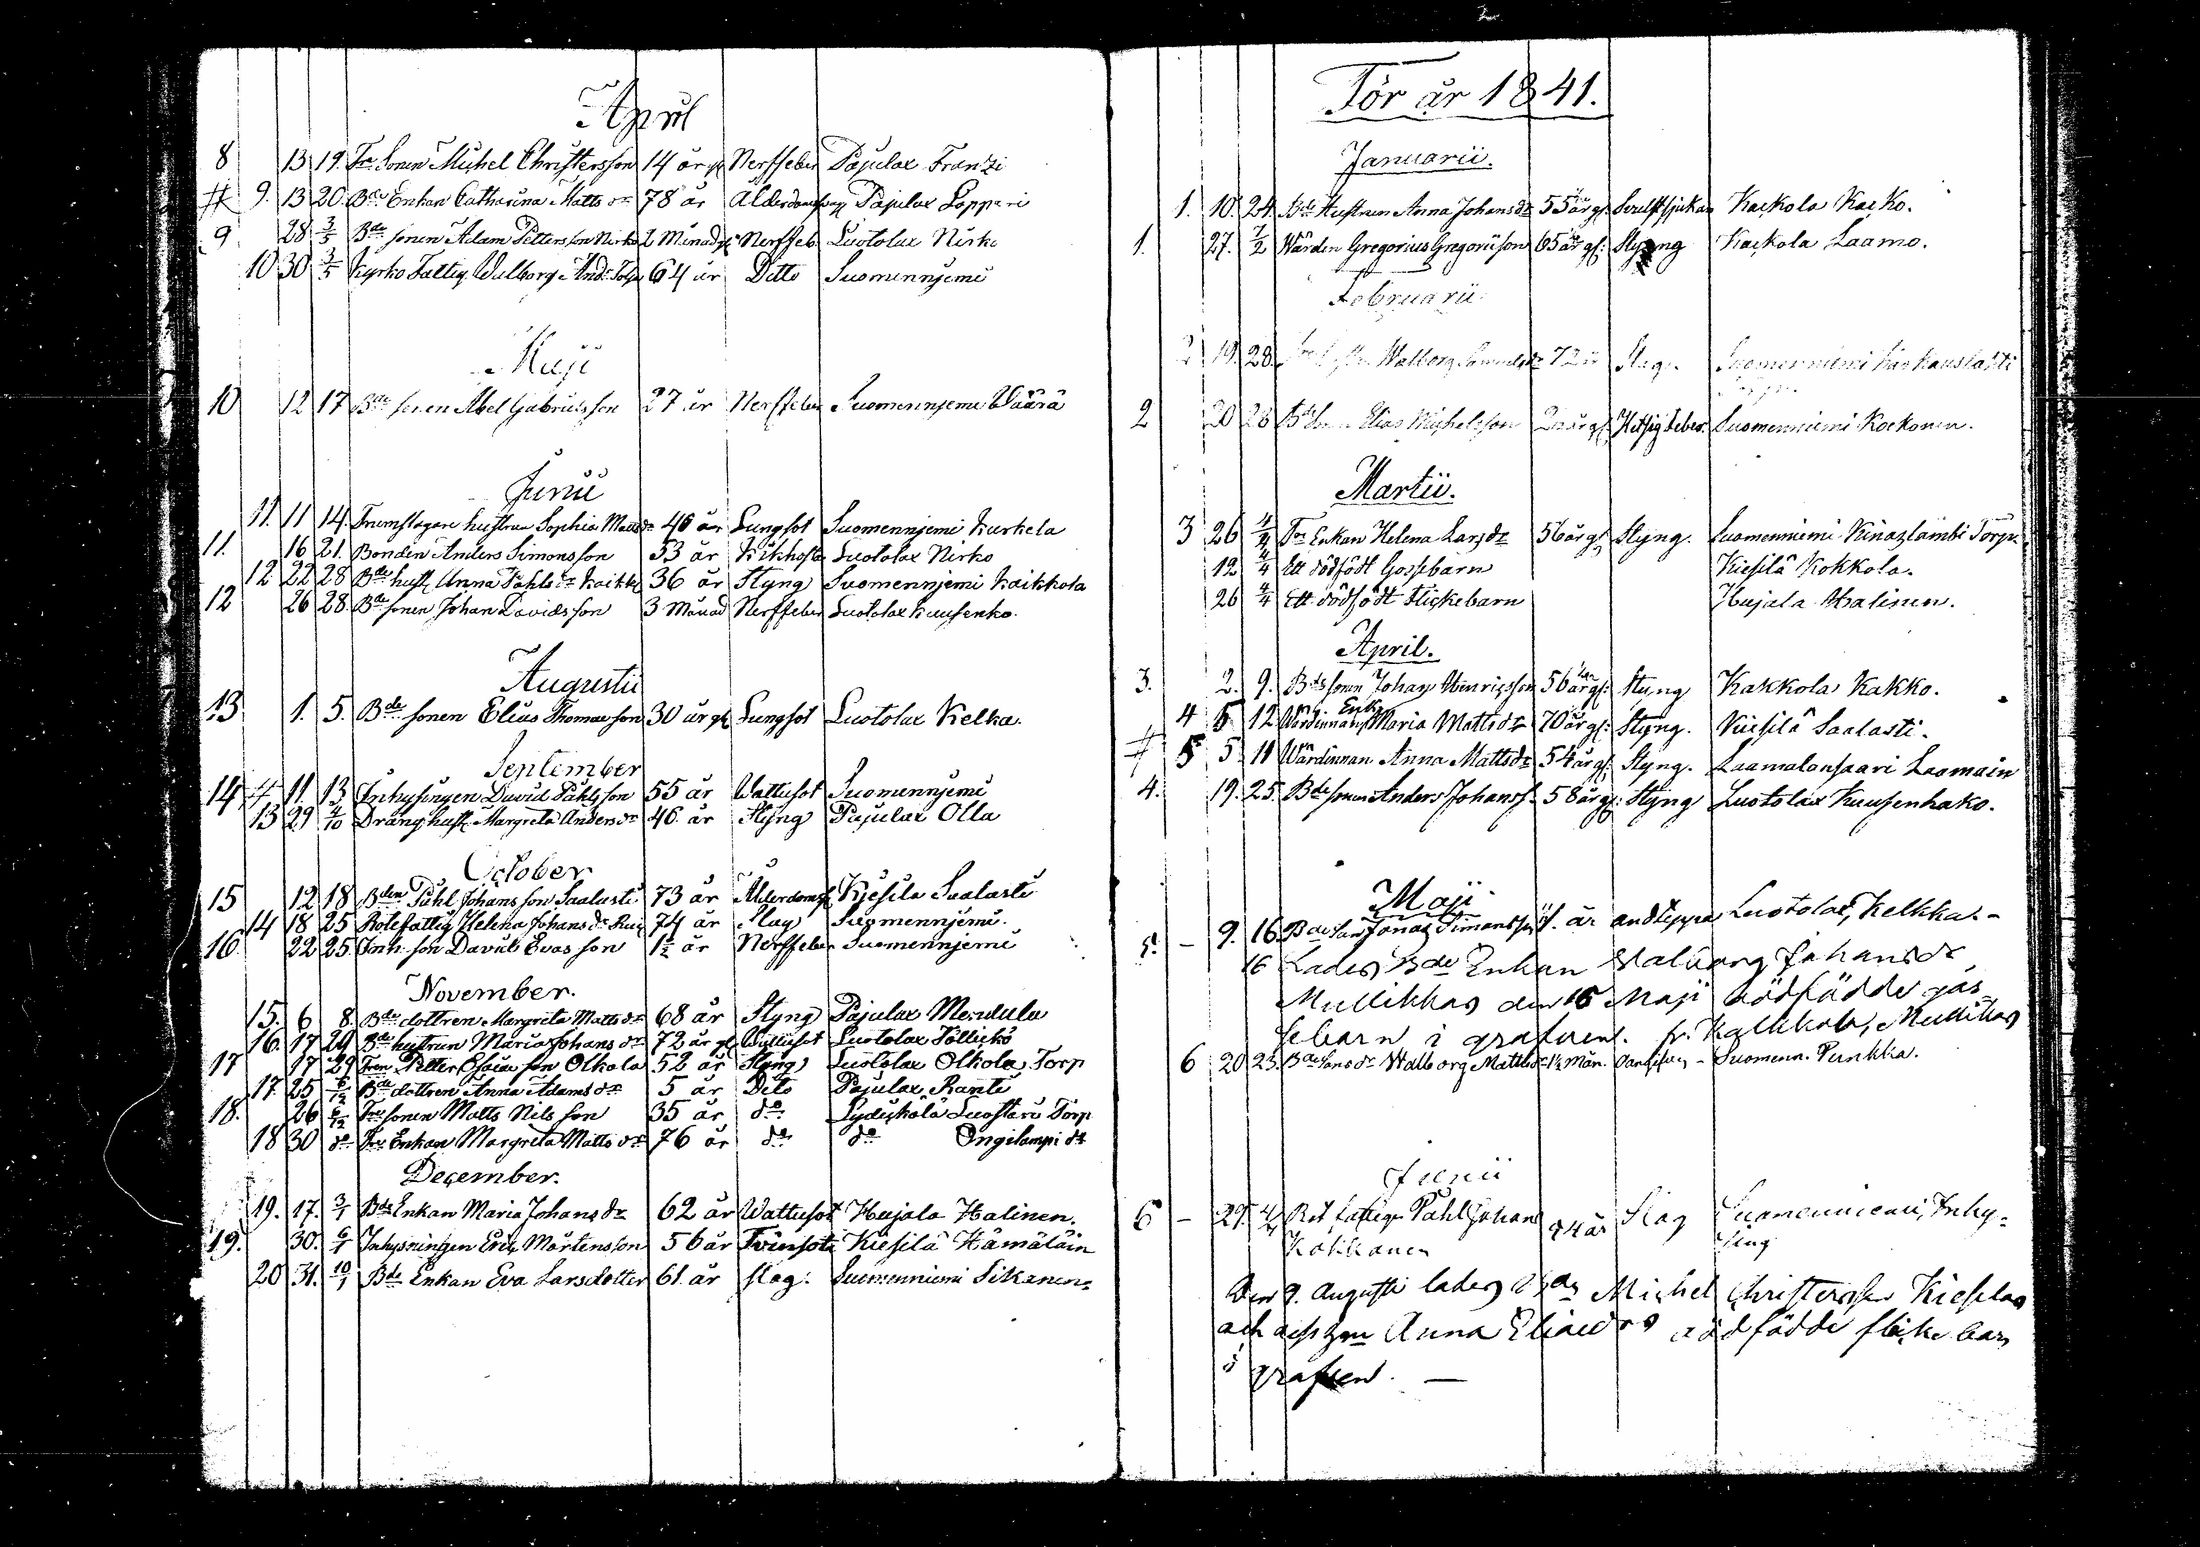 April
8 13 19. Tor. Sonen Michel Christersson 14 år gl Nerffeber Pajulax Franzi
# 9. 13 20. Bde Enkan Catharina Matts dr 78 år Ålderdoms Pajulax Loppari
9 28 3/5 Bde sonen Adam Pettersson Nirko 2 Månad gl Nerffeb. Luotolax Nirko
10 30 3/5 Kyrko Fattig Walborg Ands 64 år Ditto Suomennjemi
Maji
10 12 17 Bde sonen Abel Gabrielsson 27 år Nerffeber Suomennjemi Wäärä
Junii
11. 11 14. Trumslagare hustrun Sophia Matts dr 46 år Lungsot Suomennjemi Kurkela
11. 16 21. Bonden Anders Simonsson 53 år Kikhosta Luotolax Nirko
12 22 28 Bde hust. Anna Påhls dr Kaikko 36 år Styng Suomennjemi Kaikkola
12 26 28. Bde sonen Johan Davidsson 3 Månad Nerffeber Luotolax Kuusenko.
Augustii
13 1. 5. Bde sonen Elias Thomasson 30 år gl Lungsot Luotolax Kelka.
September
14 # 11. 13. Inhysingen David Påhlsson 55 år Wattusot Suomennjemi
13 29 4/10 Dräng hust. Margreta Anders dr 46. år Styng Pajulax Olla
October
15 12 18 Bden Påhl Johansson Saalasti 73 år Ålderdoms Kjesilä Saalasti
14 18 25 Rotefattig Helena Johans dr 74 år Slag Suomennjemi.
16. 22 25. Inh. son David Evasson 1½ år Nerffeber Suomennjemi
November.
15. 6 8. Bde dottren Margreta Matts dr 68 år Styng Pajulax Mendula
16. 17 29 Bde hustrun Maria Johans dr 72 år gl Wattusot Luotolax Pöllickö
17 17 29 Toren Petter Esaiasson Olkola 52 år Styng Luotolax Olkola Torp
17. 25 6/12 Bde dottren Anna Adams dr 5 år Dito Pajulax Ranti
18. 26 6/12 Tor sonen Matts Nilsson 35 år do Pydiskälä Luostari Torp
18 30 do Tor Enkan Margreta Matts dr 76 år do do Ongilampi do
December.
19. 17. 3/1 Bde Enkan Maria Johans dr 62 år Wattusot Hujala Halinen.
19. 30. 6/1 Inhysningen Eric Mårtensson 56 år Tvinsot Kiesilä Hämäläin
20 31. 10/1 Bde Enkan Eva Larsdotter 61. år slag. Suomenniemi Sikanen
För år 1841.
Januarii.
1. 10. 24. Bde Hustrun Anna Johans dr 55 år gl: Kackola Kacko.
1. 27. 7/2 Värden Gregorius Gregoriison 65 år gl: Styng Kackola Laamo.
Februarii
2 19. 28. Walborg Samuels dr 72 år Slag. Suomenniemi
2 20 28 Bde Son Elias Michelsson år gl. Hetsig Feber. Suomenniemi Kockonen.
Martii.
3 26 4/4 Tor Enkan Helena Lars dr 56 år gl Styng. Suomenniemi Torp.
12 4/4 Ett dödfödt Gossebarn Kiesilä Kokkola.
26 4/4 Ett dödfödt Flickebarn Hujala Halinen.
April.
3. 2. 9. Bde sonen Johan Henricsson 56 år gl: Styng Kakkola Kakko.
4 5 12 Värdinnan Enk. Maria Matts dr 70 år gl: Styng. Kiesilä Saalasti.
# 5 5 11 Värdinnan Anna Matts dr 54 år gl Styng. Laamalansaari Laamain
4. 19. 25. Bde sonen Anders Johanss. 58 år gl: Styng Luotolax Kuusenhako.
Maji
5. – 9. 16. Bde son Jonas Simonsson år andtäppa Luotolax, Kelkka. –
16 Lades Bde Enkan Walborg Johans dr
Mullikkas den 16 Maji dödfödde gos=
sebarn i grafven. fr. Kakkola, Mullikas
6 20 23. Bde Sons dr Walborg Matts dr 1½ Mån. – Suomenn. Punkka.
Junii
6 – 29. 4/7 Rot fattige Påhl Johans år Slag Suomenniemi, Inhy=
Kokkonen sing
Den 9. Augusti lades Michel Christersson Kiesilas
och dess hu Anna Eliaedrs dödfödde flicke barn
i grafven. —